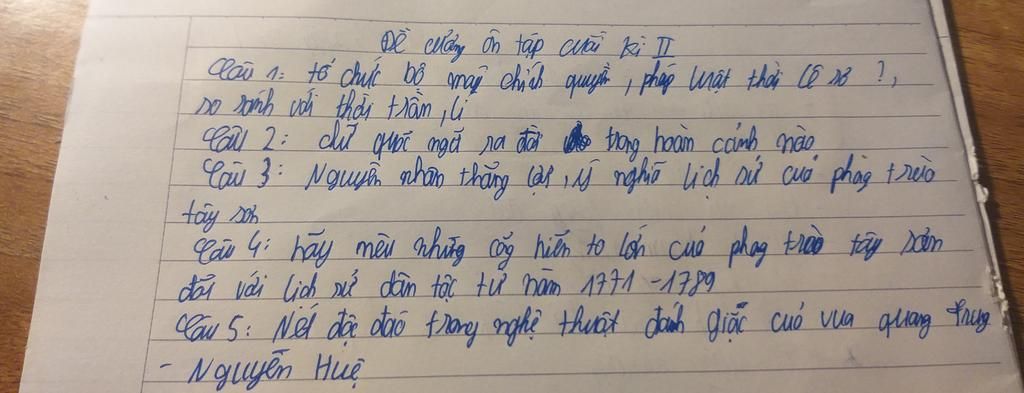 Đề cương ôn tập cuối kì II
Câu 1: tổ chức bộ máy chính quyền, pháp luật thời lê sơ ?,
so sánh với thời trần, lí
Câu 2: chữ quốc ngữ ra đời trong hoàn cảnh nào
Câu 3: Nguyên nhân thắng lợi, ý nghĩa lịch sử của phong trào
tây sơn
Câu 4: hãy nêu những cống hiến to lớn của phong trào tây sơn
đối với lịch sử dân tộc từ năm 1771 - 1789
Câu 5: Nét độc đáo trong nghệ thuật đánh giặc của vua quang trung
- Nguyễn Huệ